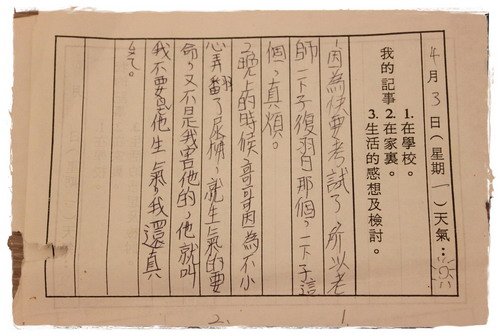 4月3日(星期一)天氣：
我的記事
1.在學校。
2.在家裏。
3.生活的感想及檢討。
因為快要考試了，所以老
師一下子復習那個，一下子這
個，真煩。
2晚上的時候哥哥因為不小
心弄翻了尿桶，就生氣的要
命，又不是我害他的，他就叫
我不要惹他生氣。我還真
1
2